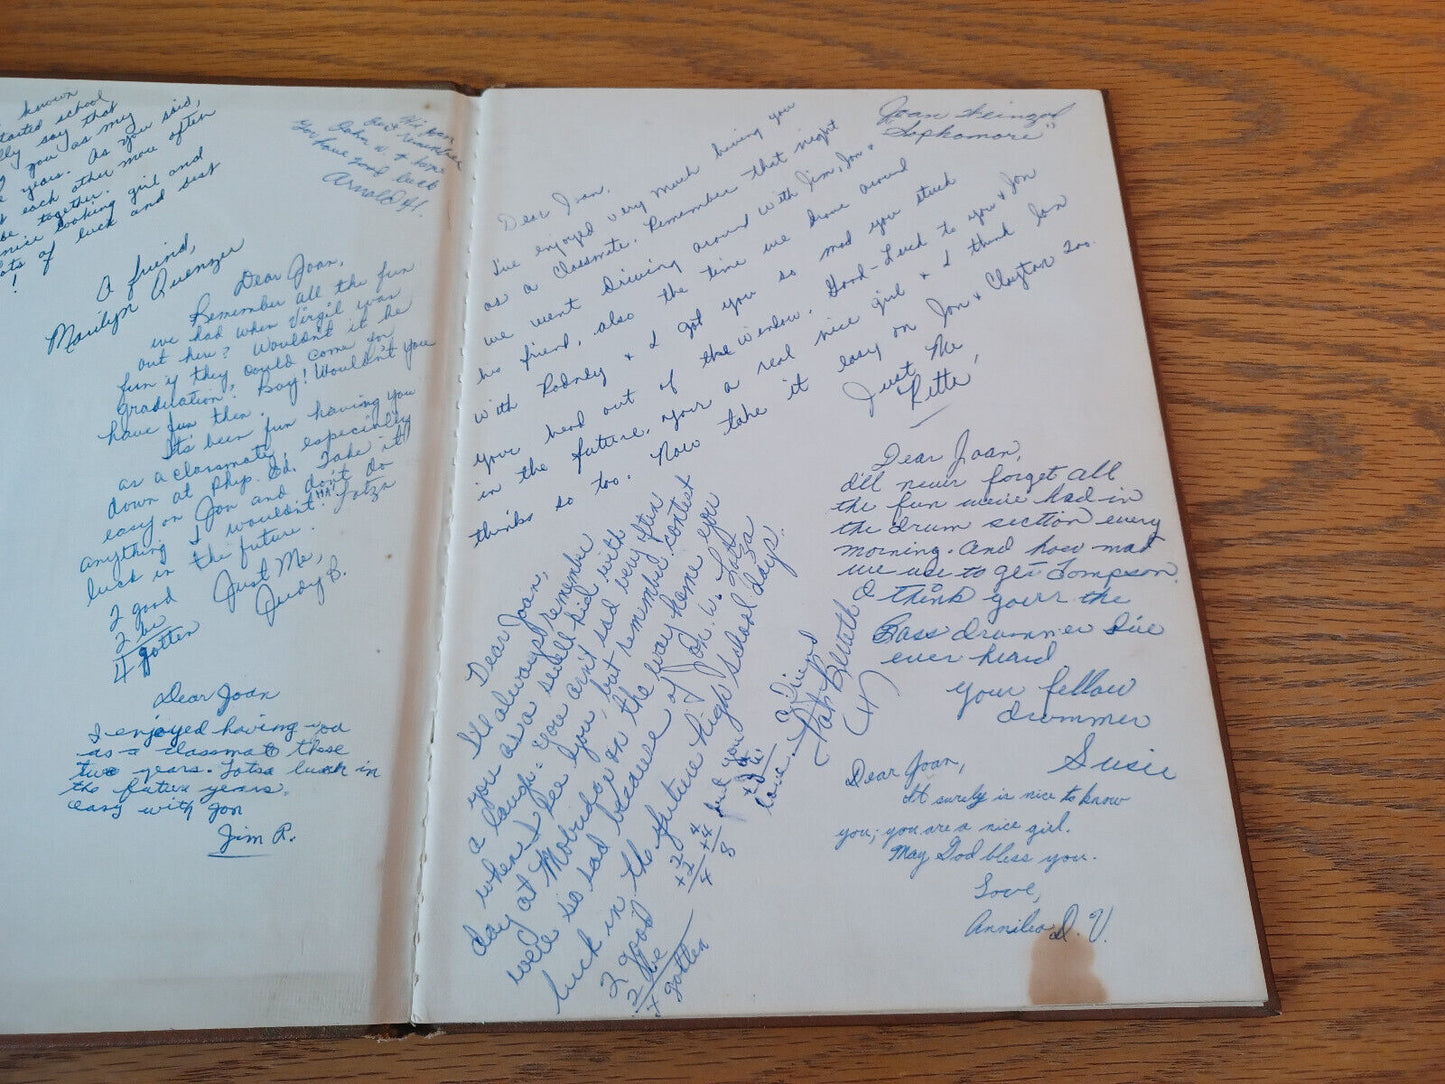 known
started school
say that
you as my
years. As you said,
each other more often
together.
nice looking girl and
lots of luck and best
!
A friend,
Marilyn Quenzer
Hi Joan
John W. &
have good luck
Arnold H.
Dear Joan,
Remember all the fun
we had when Virgil was
out here? Wouldn't it be
fun if they could come on
graduation? Boy! Wouldn't you
have fun then.
It's been fun having you
as a classmate, especially
down at Phys. Ed. Take it
easy on Jon and don't do
anything I wouldn't!!HA! Lotza
luck in the future.
Just Me,
Judy B.
2 good
2 be
4 gotten
Dear Joan
I enjoyed having you
as a classmate these
two years. Lotsa luck in
the future years.
easy with Jon
Jim R.
Joan
"Sophomore"
Dear Joan,
I've enjoyed very much having you
as a classmate. Remember that night
we went driving around with Jim, Jon &
his friend, also the time we drove around
with Rodney & I got you so mad you stuck
your head out of the window. Good-Luck to you & Jon
in the future. Your a real nice girl & I think Jon
thinks so too. Now take it easy on Jon & Clayton Too.
Just Me,
"Rette"
Dear Joan,
I'll always remember
you as a swell kid with
a laugh. You ain't sad very often
when I see you, but remember contest
day at Mobridge on the way home you
were so sad because of Jon W. Lotza
luck in the future high school days.
2 good
2 be
4 gotten
2
+2
4
4
+4
8
love.
a friend
Pat
Dear Joan,
I'll never forget all
the fun we've had in
the drum section every
morning. And how mad
we use to get Tompson.
I think your the
Bass drummer I've
ever heard
Your fellow
drummer
Susie
Dear Joan,
It surely is nice to know
you; you are a nice girl.
May God bless you.
Love,
D. V.